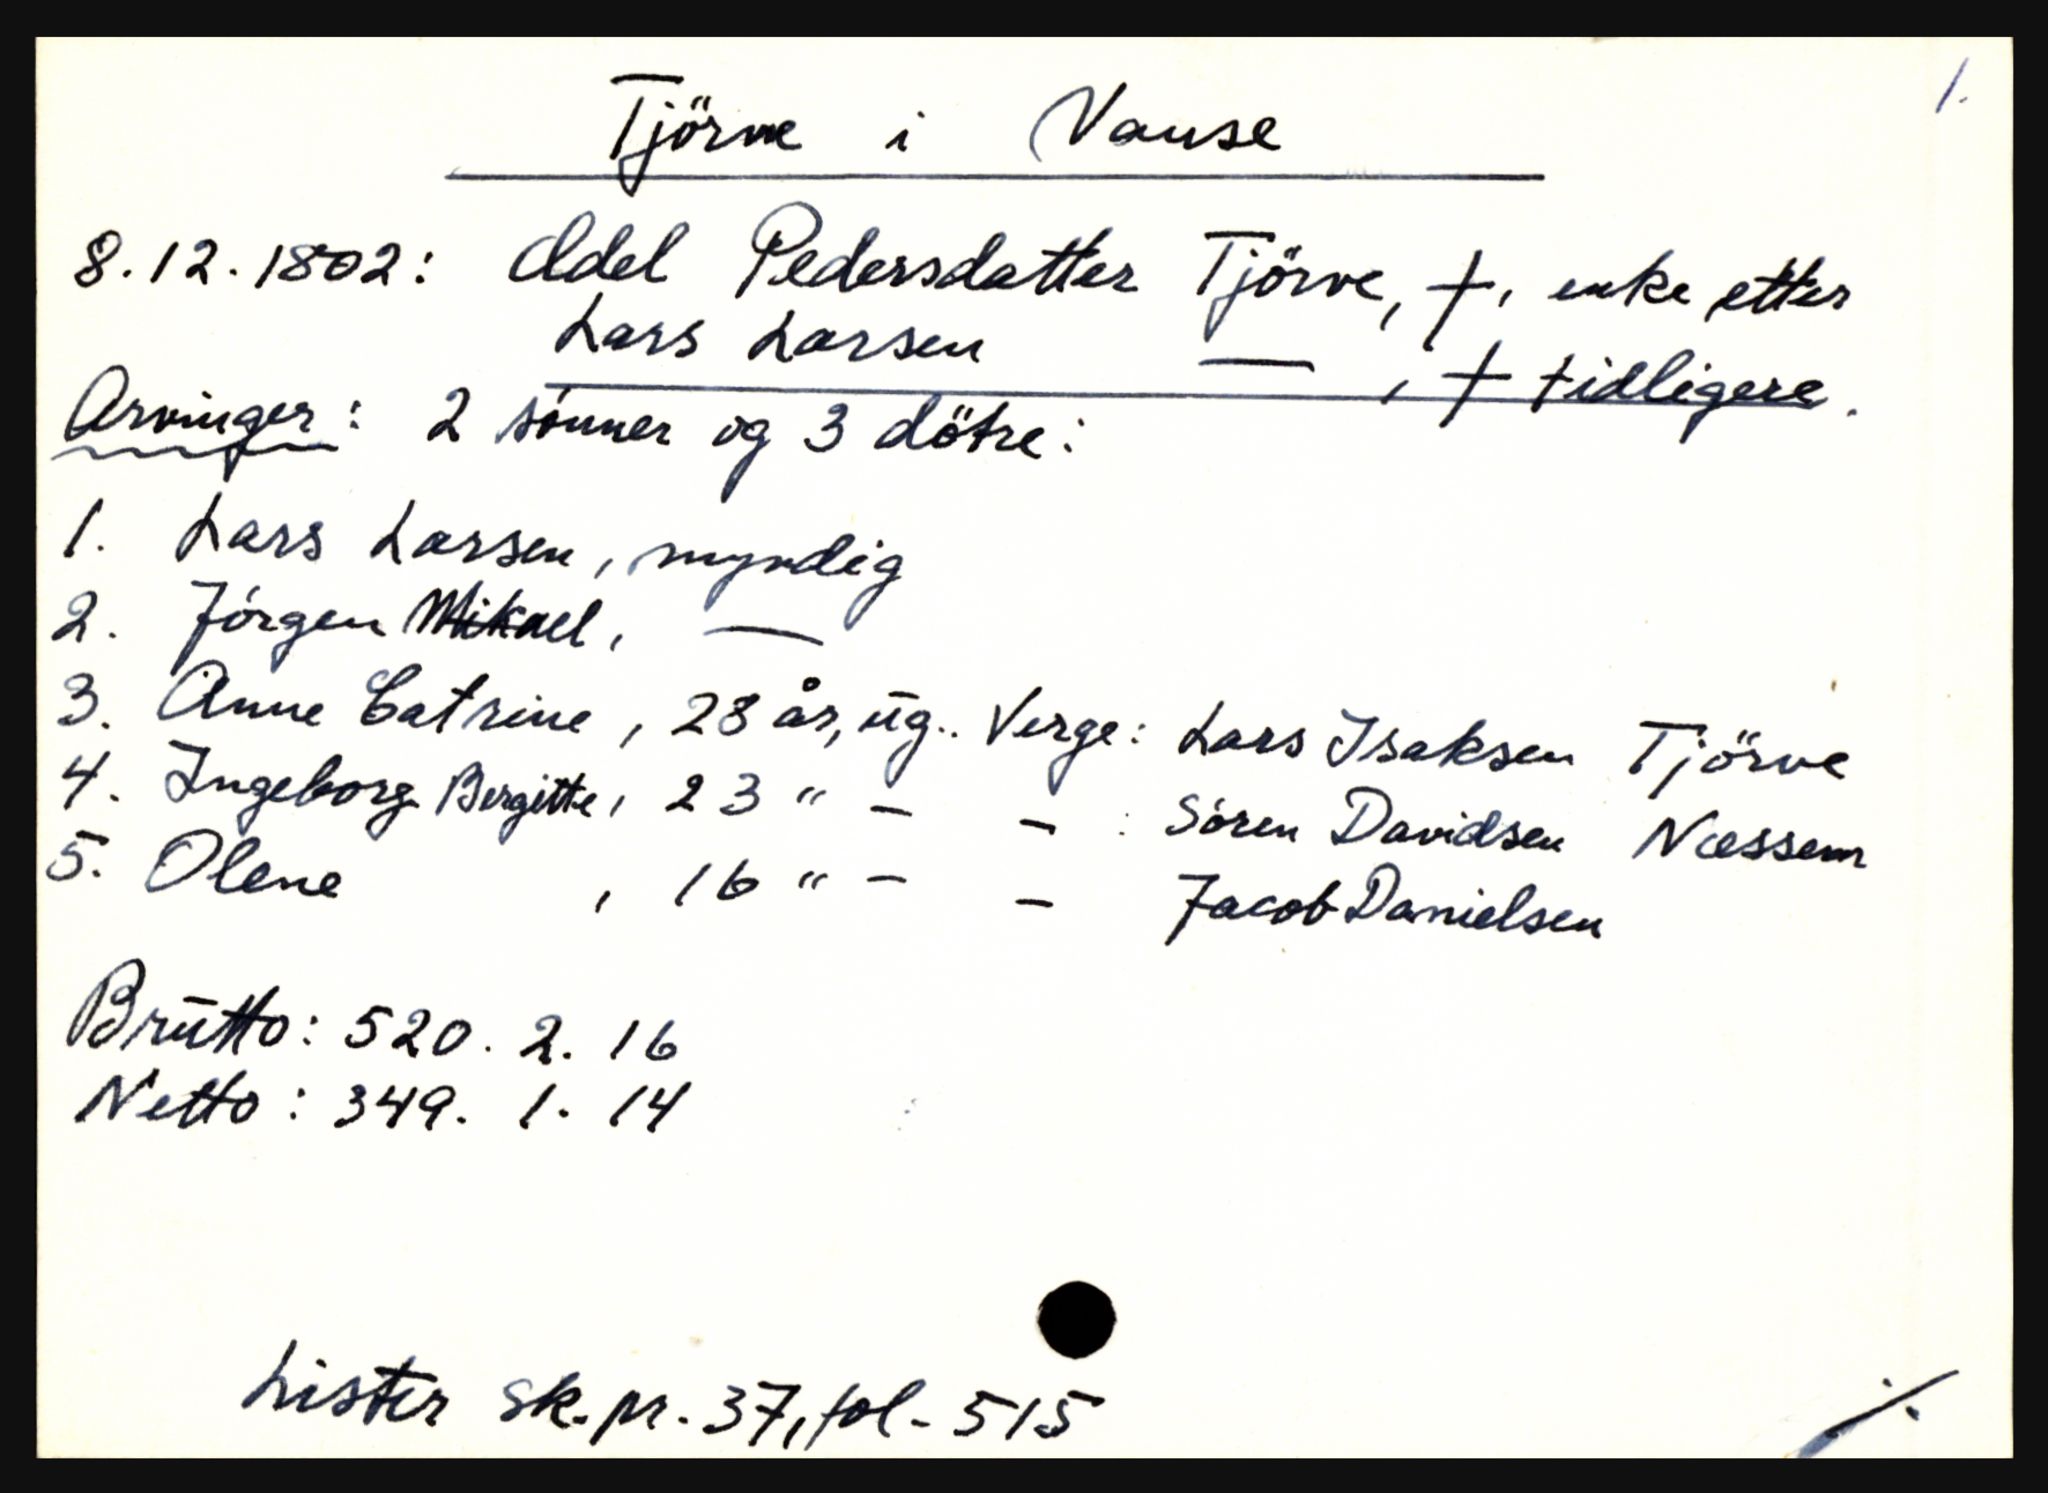 1.
Tjörve i Vanse
8.12.1802: Adel Pedersdatter Tjörve, †, enke etter
Lars Larsen — , † tidligere.
Arvinger: 2 sönner og 3 dötre:
1. Lars Larsen, myndig
2. Jörgen Mikael, —
3. Anne Catrine, 28 år, ūg.. Verge: Lars Isaksen Tjörve
4. Ingeborg Bergitte, 23 " – – : Sören Davidsen Næssem
5. Olene , 16 " – – Jacob Danielsen
Brūtto: 520. 2. 16
Netto: 349. 1. 14
Lister sk.pr. 37, fol. 515
./.